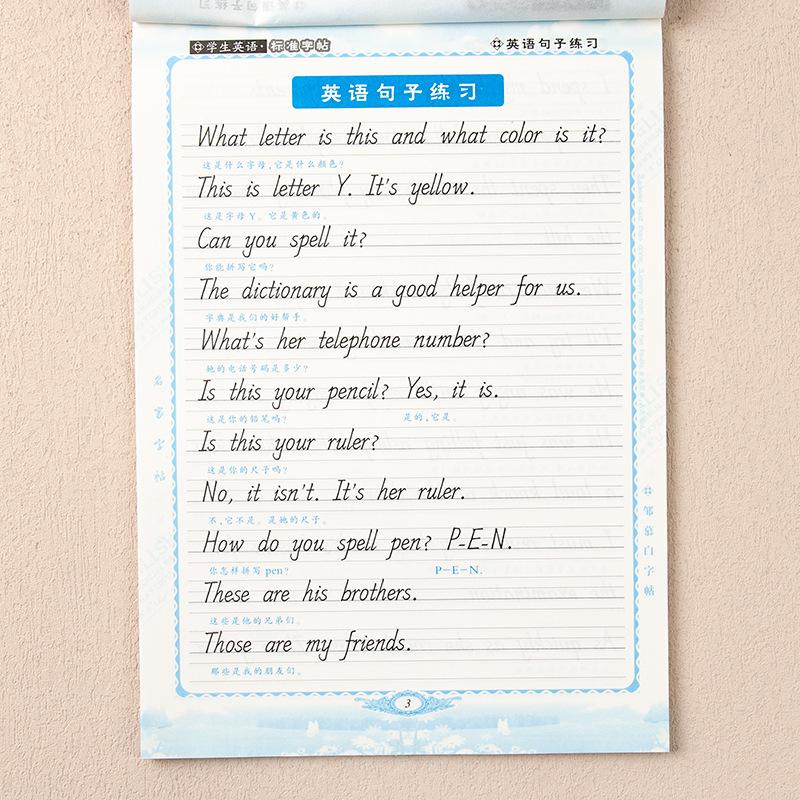 学生英语·标准字帖
英语句子练习
英语句子练习
What letter is this and what color is it?
这是什么字母,它是什么颜色?
This is letter Y. It's yellow.
这是字母Y。它是黄色的。
Can you spell it?
你能拼写它吗?
The dictionary is a good helper for us.
字典是我们的好帮手。
What's her telephone number?
她的电话号码是多少?
Is this your pencil? Yes, it is.
这是你的铅笔吗? 是的,它是。
Is this your ruler?
这是你的尺子吗?
No, it isn't. It's her ruler.
不,它不是。是她的尺子。
How do you spell pen? P-E-N.
你怎样拼写pen? P-E-N.
These are his brothers.
这些是他的兄弟们。
Those are my friends.
那些是我的朋友们。
名家字帖
邹慕白字帖
3